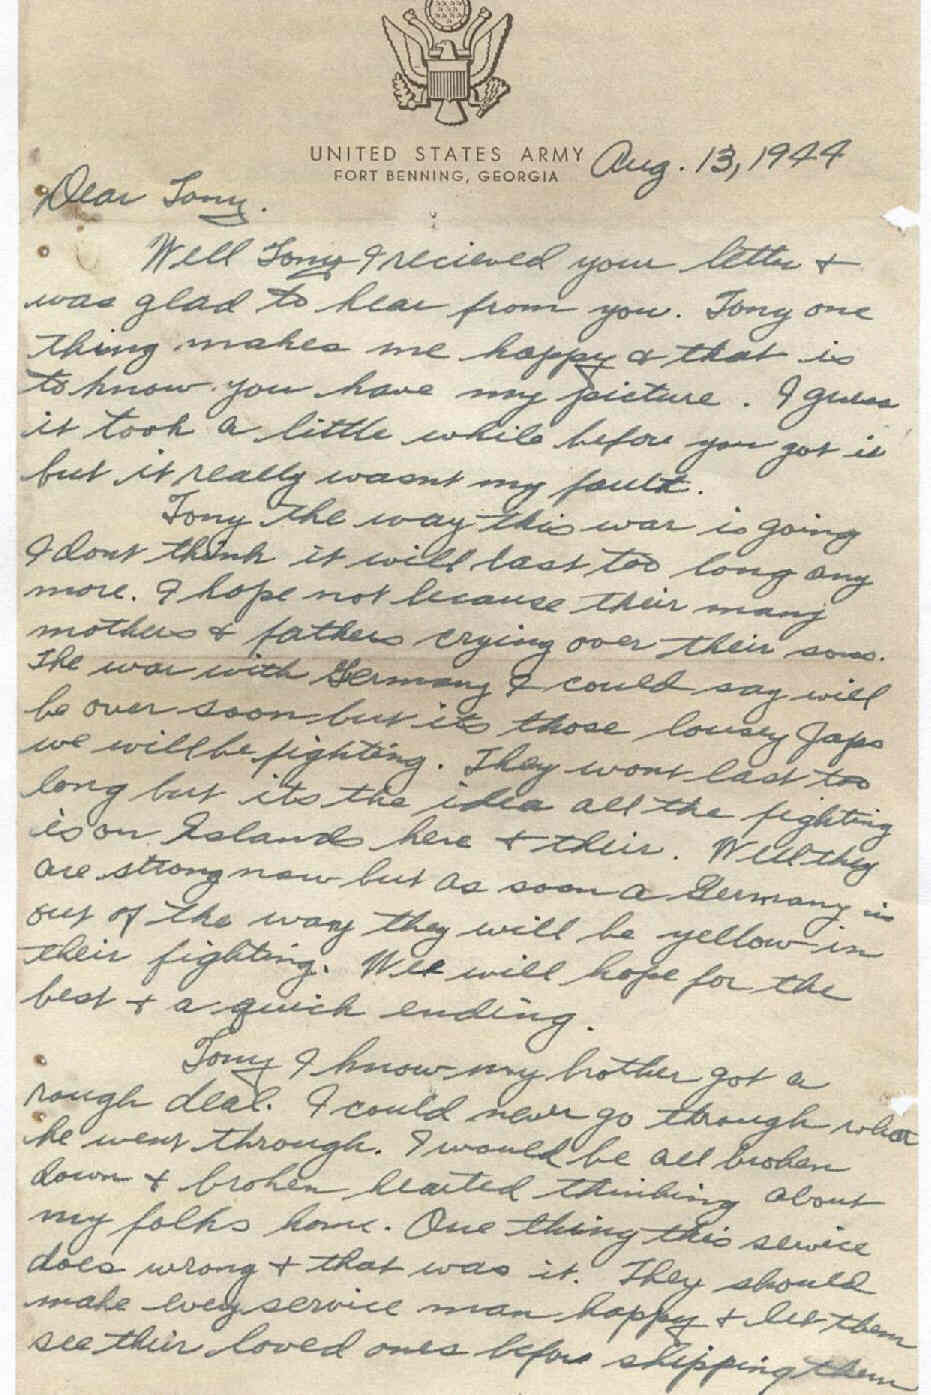 UNITED STATES ARMY
FORT BENNING, GEORGIA
Aug. 13, 1944
Dear Tony.
Well Tony I recieved your letter &
was glad to hear from you. Tony one
thing makes me happy & that is
to know you have my picture. I guess
it took a little while before you got it
but it really wasnt my fault.
Tony the way this war is going
I dont think it will last too long any
more. I hope not because their many
mothers & fathers crying over their sons.
The war with Germany I could say will
be over soon but its those lousey Japs
we will be fighting. They wont last too
long but its the idea all the fighting
is on Islands here & their. Well they
are strong now but as soon a Germany is
out of the way they will be yellow in
their fighting. We will hope for the
best & a quick ending.
Tony I know my brother got a
rough deal. I could never go through what
he went through. I would be all broken
down & broken hearted thinking about
my folks home. One thing this service
does wrong & that was it. They should
make every service man happy & let them
see their loved ones before shipping them